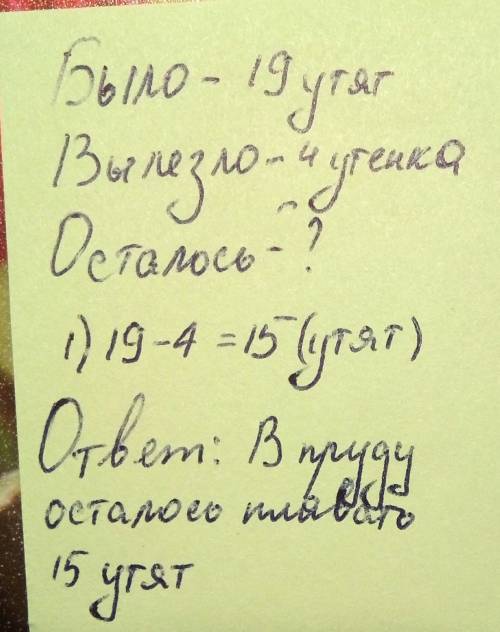 Было - 19 утят
Вылезло - 4 утенка
Осталось - ?
1) 19 - 4 = 15 (утят)
Ответ: В пруду
осталось плавать
15 утят